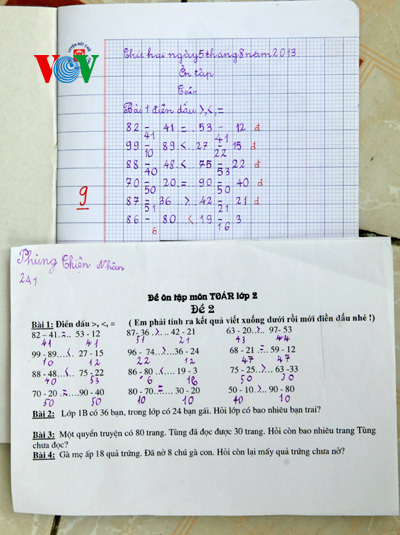 VOV
Thứ hai ngày 5 tháng 8 năm 2013
Ôn tập
Toán
Bài 1 điền dấu >, <, =
82 - 41 = 53 - 12 đ
41 41
99 - 89 < 27 - 15 đ
10 22
88 - 48 < 75 - 22 đ
40 53
70 - 20 = 90 - 40 đ
50 50
87 - 36 > 42 - 21 đ
51 21
86 - 80 < 19 - 3
6 16
9
Phùng Thiên Nhân
2A1
Đề ôn tập môn TOÁN lớp 2
Đề 2
Bài 1: Điền dấu >, <, = ( Em phải tính ra kết quả viết xuống dưới rồi mới điền dấu nhé !)
82 – 41 = 53 - 12 87- 36 > 42 - 21 63 - 20 > 97- 53
41 41 51 21 43 44
99 - 89 < 27 - 15 96 - 74 > 36 - 24 68 - 21 = 59 - 12
10 12 22 12 47 47
88 - 48 < 75 -22 86 - 80 < 19 - 3 75 - 25 > 63 -33
40 53 6 16 50 30
70 - 20 = 90 - 40 80 - 70 = 30 - 20 50 - 10 > 90 - 80
50 50 10 10 40 10
Bài 2: Lớp 1B có 36 bạn, trong lớp có 24 bạn gái. Hỏi lớp có bao nhiêu bạn trai?
Bài 3: Một quyển truyện có 80 trang. Tùng đã đọc được 30 trang. Hỏi còn bao nhiêu trang Tùng
chưa đọc?
Bài 4: Gà mẹ ấp 18 quả trứng. Đã nở 8 chú gà con. Hỏi còn lại mấy quả trứng chưa nở?